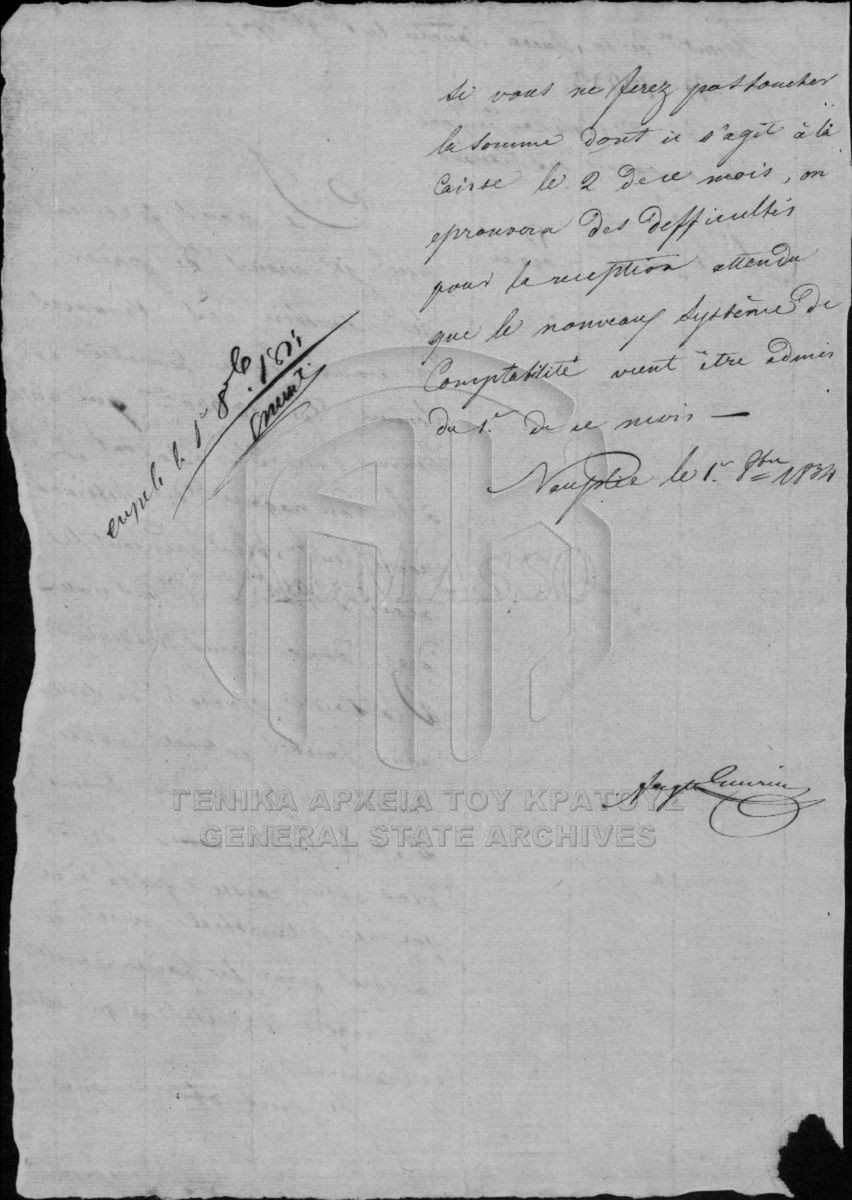 si vous ne ferez pas toucher
la somme dont il s'agit à la
Caisse le 2 de ce mois, on
eprouvera des defficultés
pour la reception attendu
que le nouveau Système de
Comptabilité vient être admis
du 1.r de ce mois —
Nauplie le 1.r 8bre 1834
le 1r 8bre 183
ΓΕΝΙΚΑ ΑΡΧΕΙΑ ΤΟΥ ΚΡΑΤΟΥΣ
GENERAL STATE ARCHIVES